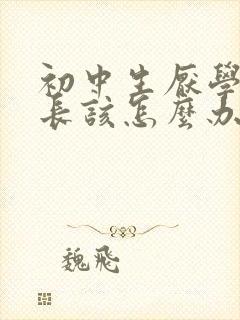 初中生厭學
長該怎麼办
魏飛